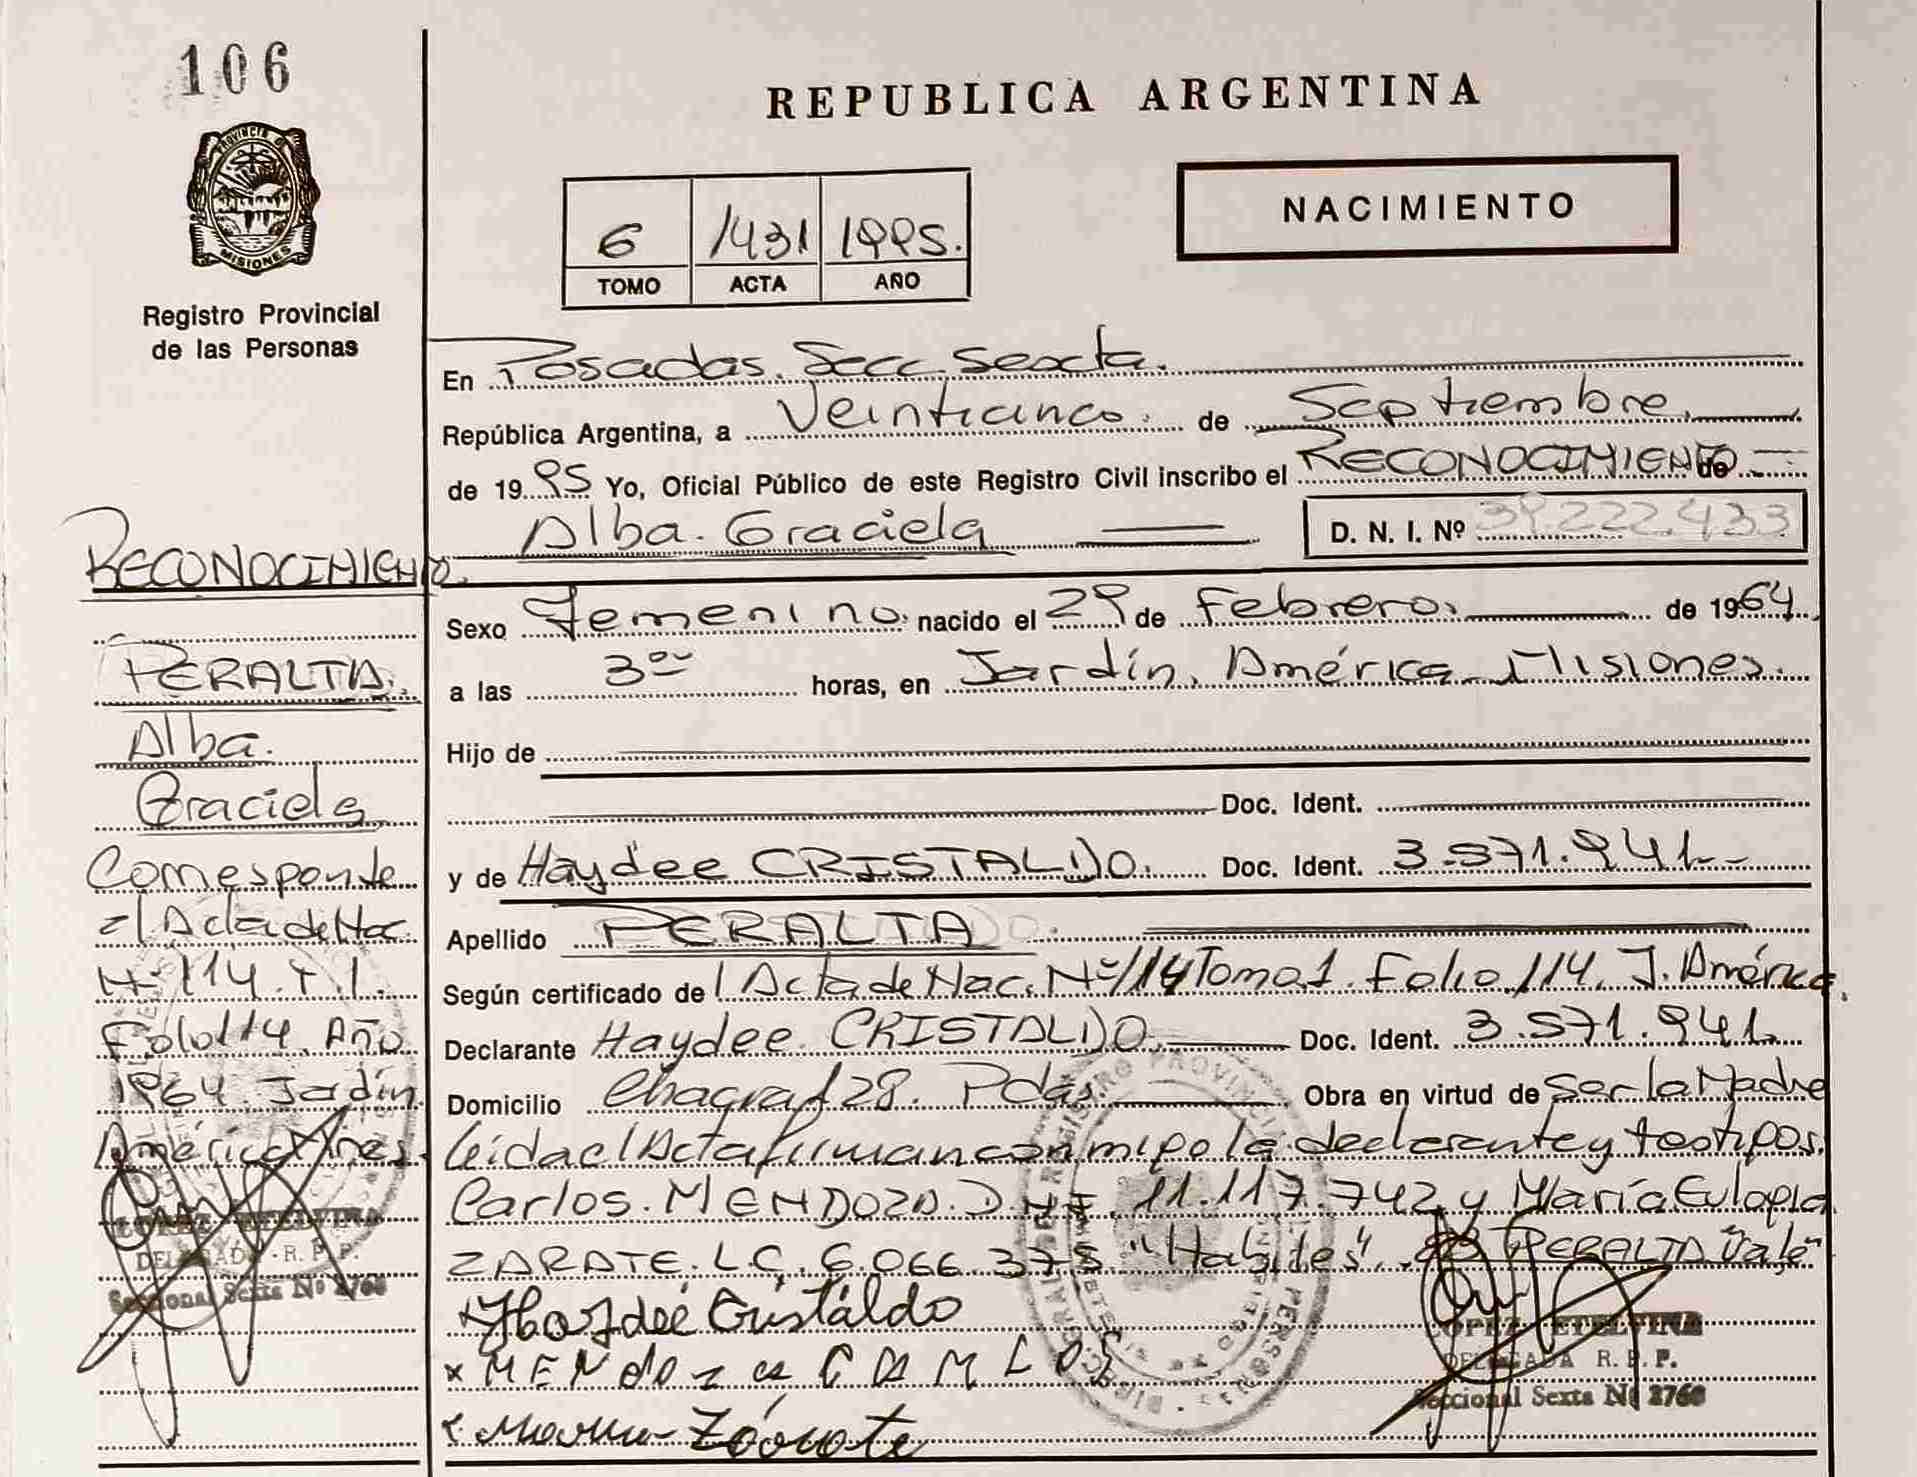 106
PROVINCIA DE
MISIONES
Registro Provincial
de las Personas
RECONOCIMIENTO.
PERALTA.
Alba.
Graciela
Corresponde
al Acta de Nac.
Nº 114. T. 1.
Folio 114. Año
1964. Jardín
América Mnes.
LOPEZ ETELVINA
DELEGADA - R. P. P.
Seccional Sexta Nº 2766
REPUBLICA ARGENTINA
NACIMIENTO
6 1431 1995.
TOMO ACTA AÑO
En Posadas. Secc. Sexta.
República Argentina, a Veinticinco. de Septiembre.
de 1995 Yo, Oficial Público de este Registro Civil inscribo el RECONOCIMIENTO de
Alba. Graciela
D. N. I. Nº 39.222.433
Sexo Femenino. nacido el 29 de Febrero. de 1964.
a las 3 horas, en Jardín. América. Misiones.
Hijo de
Doc. Ident.
y de Haydee CRISTALDO. Doc. Ident. 3.571.941.
Apellido PERALTA
Según certificado de l Acta de Nac. Nº 114 Tomo 1. Folio. 114. J. América.
Declarante Haydee. CRISTALDO. Doc. Ident. 3.571.941.
Domicilio Chacra 128. Pdas. Obra en virtud de Ser la Madre
Leida el Acta firman conmigo la declarante y testigos.
Carlos. MENDOZA. D.N.I. 11.117.742 y María Eulogia
ZARATE. L.C. 6.066.375 "Habiles". PERALTA "Vale"
x Haydeé Cristaldo
x MENdozа CARLOS
x Zárate
LOPEZ ETELVINA
DELEGADA R. P. P.
Seccional Sexta Nº 2766